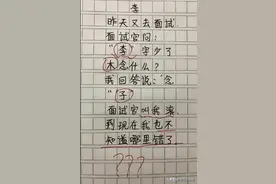 李
昨天又去面试
面试官问：
“李”字少了
木念什么？
我回答说：“念
“子”
面试官叫我滚
到现在我也不
知道哪里错了
？？？